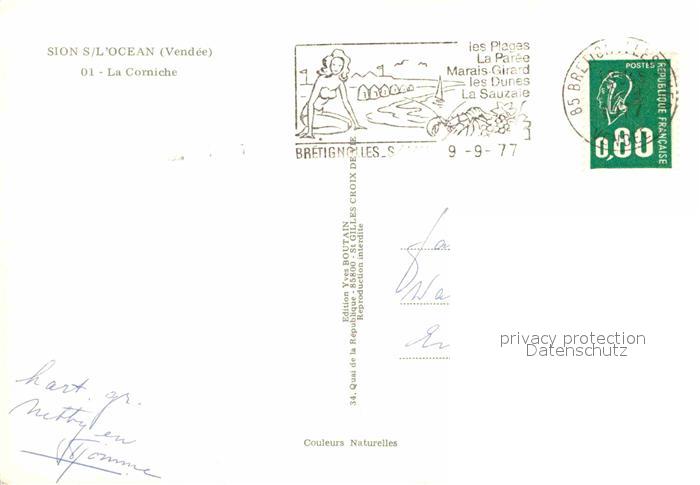 SION S/L'OCEAN (Vendée)
01 - La Corniche
les Plages
La Parée
Marais-Girard
les Dunes
La Sauzaie
BRETIGNOLLES_S
9 -9- 77
85 BRETIGNOLLES
POSTES
REPUBLIQUE FRANÇAISE
0,80
Edition Yves BOUTAIN
34, Quai de la République - 85800 - St GILLES CROIX DE VIE
Reproduction interdite
Wa
privacy protection
Datenschutz
hart. gr.
Netty en
Tomme
Couleurs Naturelles